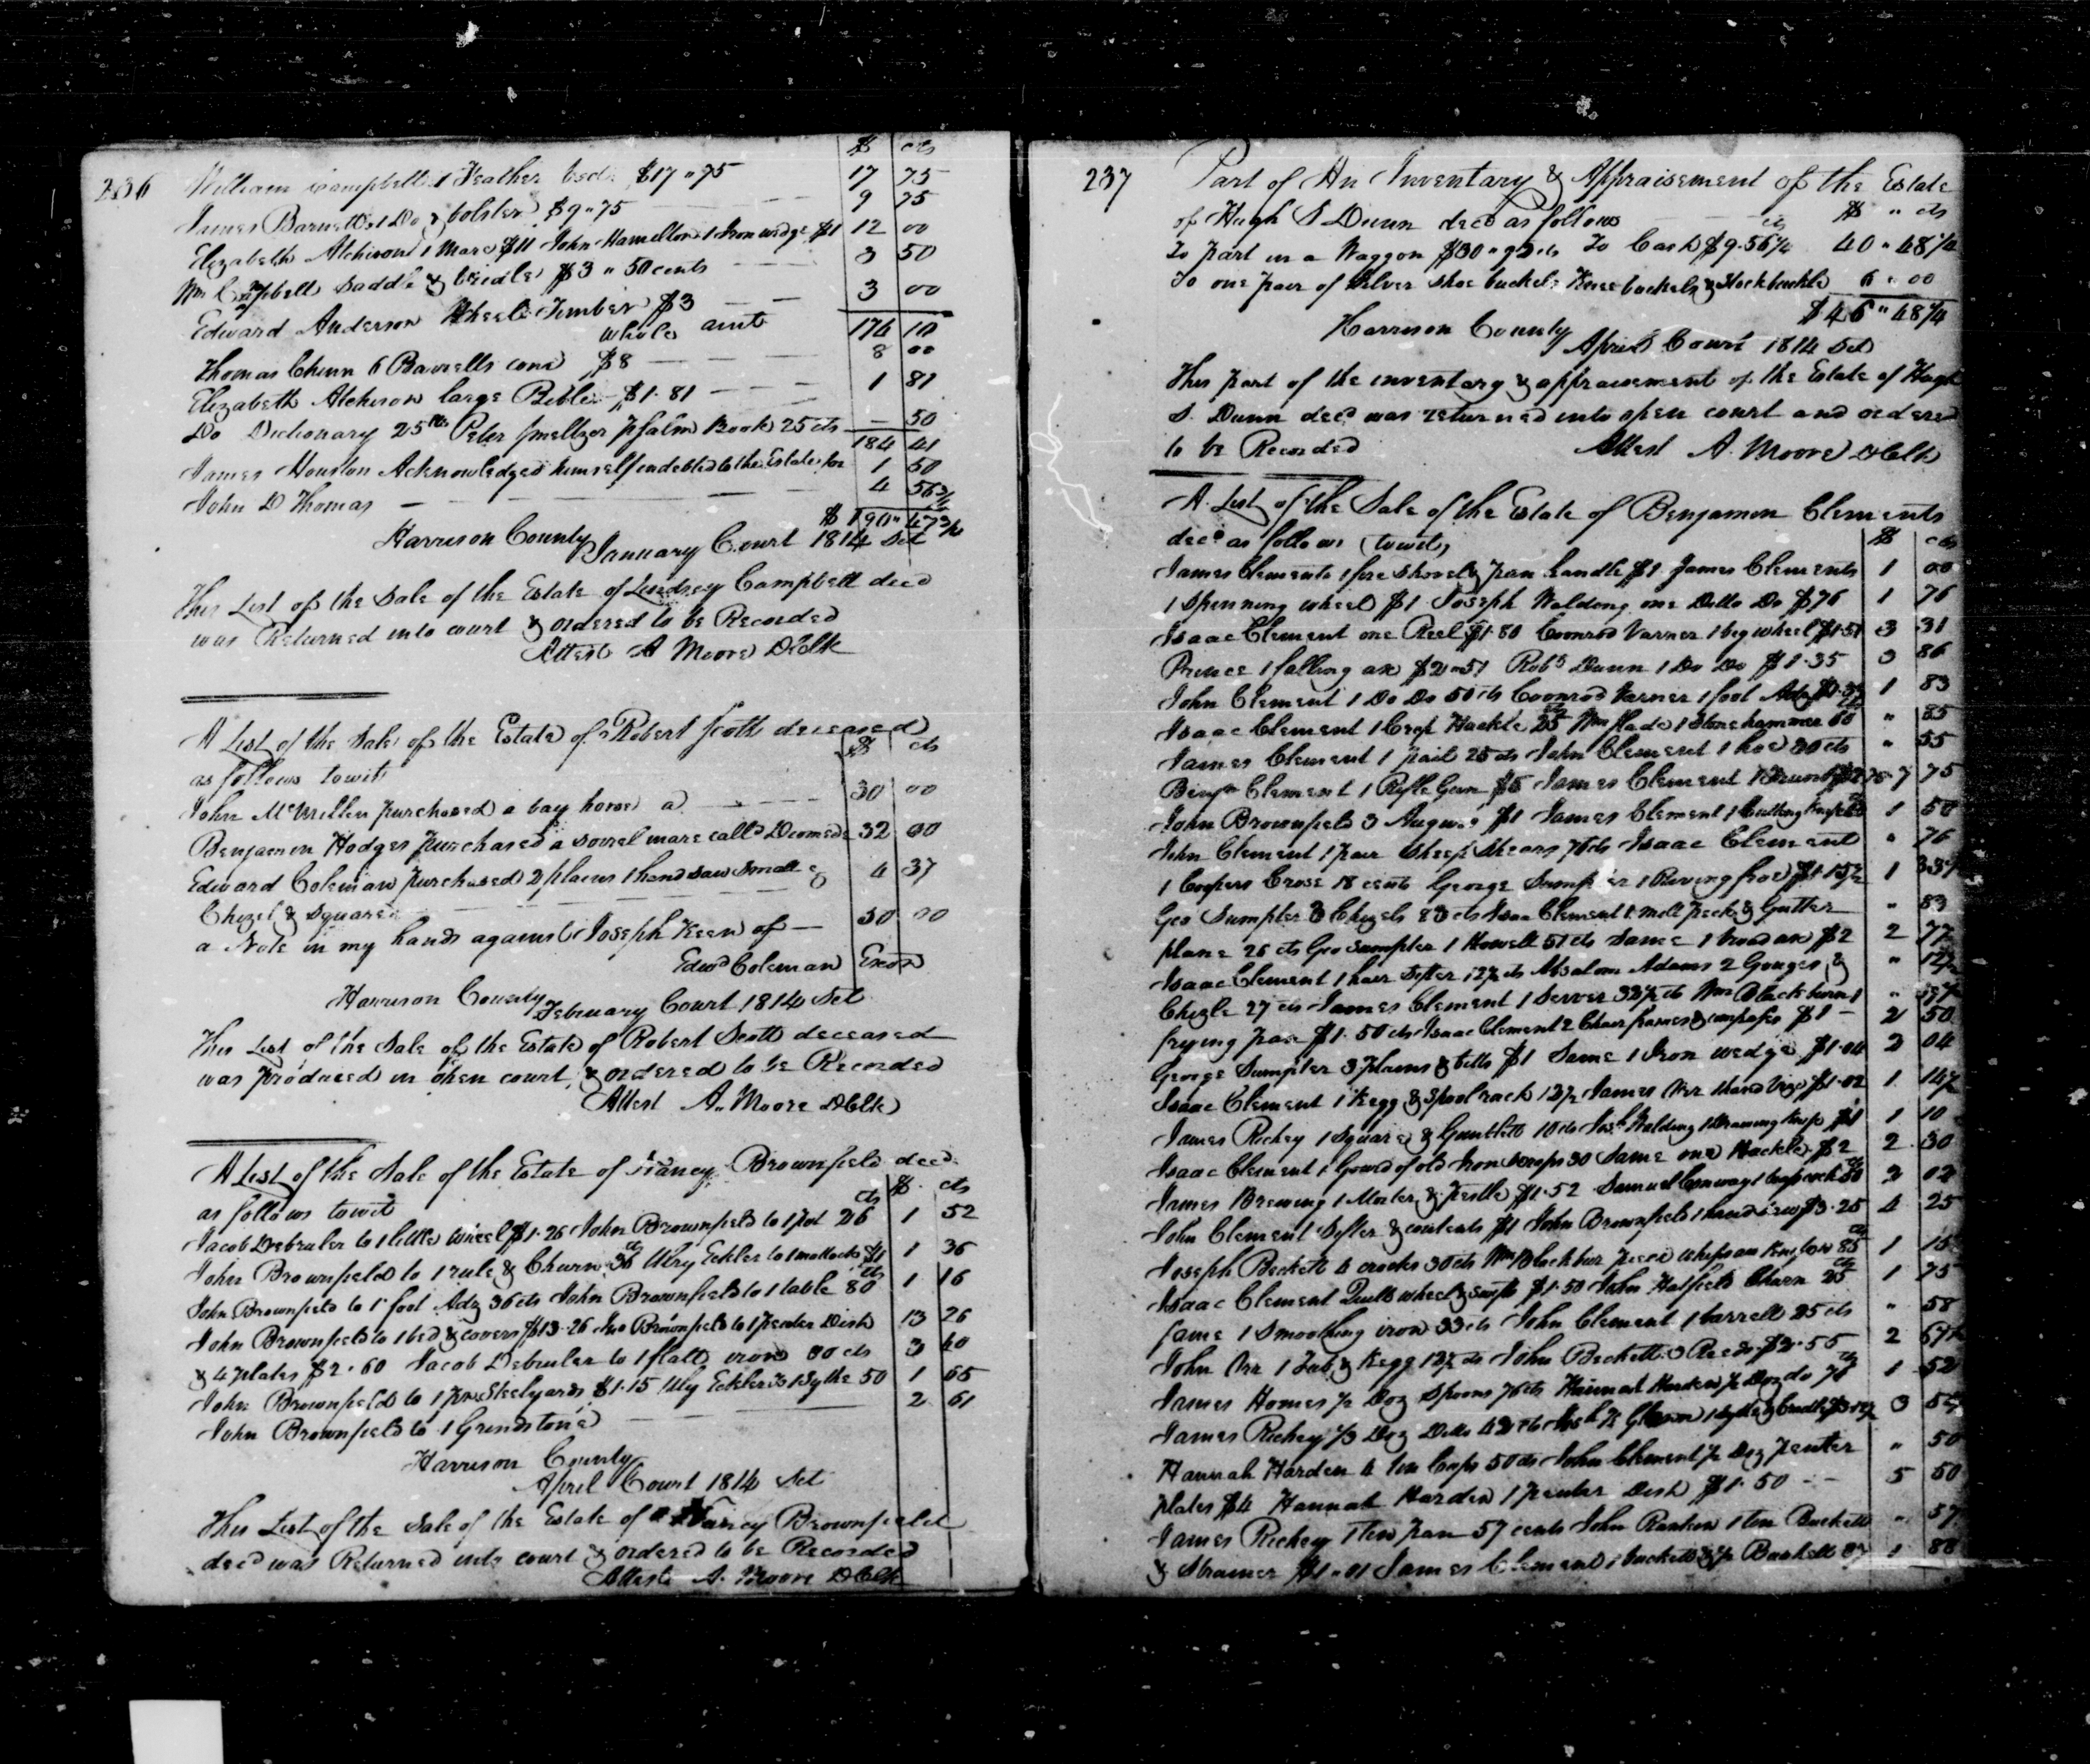 236
$ cts
William Campbell 1 Feather bed $17"75 17 75
James Barnett 1 Do & bolster $9"75 9 75
Elizabeth Atchison 1 Mare $11 John Hamelton 1 Iron wedge $1 12 00
Wm Campbell Saddle & bridle $3"50 cents 3 50
Edward Anderson Wheel Timber $3 3 00
whole amt 174 10
Thomas Chinn 6 Barrells corn $8 8 00
Elizabeth Atcheson large Bible $1.81 1 81
Do Dictionary 25 cts Peter Smeltzer Psalm Book 25 cts — 50
184 41
James Houston Acknowledged himself indebted to the Estate for 1 50
John D Thomas 4 56 3/4
$190"47 3/4
Harrison County January Court 1814 Sct
This List of the Sale of the Estate of Lindsey Campbell decd
was Returned into court & ordered to be Recorded
Attest A Moore DClk
A List of the Sale of the Estate of Robert Scott deceased
as follows towit $ cts
John McMillen purchased a bay horse a 30 00
Benjamin Hodges purchased a sorrel mare calld Diomede 32 00
Edward Coleman purchased 2 plains 1 hand saw small & 4 37
Chizel & Square
a Note in my hands against Joseph Keen of — 50 00
Edwd Coleman Excr
Harrison County February Court 1814 Sct
This List of the Sale of the Estate of Robert Scott deceased
was produced in open court, & ordered to be Recorded
Attest A. Moore DClk
A List of the Sale of the Estate of Nancy Brownfield decd
as follows towit $ cts
Jacob Debruler to 1 little wheel $1.26 John Brownfield to 1 pot 26 cts 1 52
John Brownfield to 1 rule & Churn 36 cts Ulry Eckler to 1 mattock $1 1 36
John Brownfield to 1 foot Adz 36 cts John Brownfield to 1 table 80 cts 1 16
John Brownfield to 1 bed & covers $13.26 Jno Brownfield to 1 pewter Dish 13 26
& 4 plates $2.60 Jacob Debruler to 1 flatt iron 80 cts 3 40
John Brownfield to 1 pr Steelyards $1.15 Ulry Eckler to 1 Sythe 50 1 65
John Brownfield to 1 Grindstone 2 61
Harrison County
April Court 1814 Sct
This List of the Sale of the Estate of Nancy Brownfield
decd was Returned into court & ordered to be Recorded
Attest A. Moore DClk
237
Part of An Inventory & Appraisement of the Estate
of Hugh S Dunn decd as follows $ " cts
To part in a Waggon $30"92 cts To Cash $9.56 1/4 40"48 1/4
To one pair of Silver Shoe buckels Knee buckels & Stock buckle 6"00
$46"48 1/4
Harrison County
April Court 1814 Sct
This part of the inventory & appraisement of the Estate of Hugh
S. Dunn decd was returned into open court and ordered
to be Recorded Attest A. Moore DClk
A List of the Sale of the Estate of Benjamin Clements
decd as follows (towit) $ cts
James Clements 1 fire shovel & pan handle $1 James Clements 1 00
1 Spinning wheel $1 Joseph Walding one Ditto Do $76 1 76
Isaac Clement one Reel $1.80 Coonrod Varner 1 big wheel $1.51 3 31
Prince 1 falling ax $2"51 Robt Dunn 1 Do Do $1.35 3 86
John Clement 1 Do Do 50 cts Coonrod Varner 1 foot Adz 1 83
Isaac Clement 1 Hackle 25 Wm Slade 1 Stone hammer 60 " 85
James Clement 1 pail 25 cts John Clement 1 hoe 30 cts " 55
Benjn Clement 1 Rifle Gun $5 James Clement 7 75
John Brownfield 3 Augurs $1 James Clement 1 Cutting knife 1 50
John Clement 1 pair Sheep Shears 76 cts Isaac Clement " 76
1 Coopers Croze 18 cents George Sumpter 1 1
Geo Sumpter 3 Chizels 83 cts Isaac Clement " 83
plane 26 cts Geo Sumpter 1 Howell 51 cts Same 1 broad ax $2 2 77
Isaac Clement 1 hair Sifter 12 1/2 cts Absalom Adams 2 Gouges, & " 12 1/2
Chizle 27 cts James Clement 1 Wm Blackburn 1 "
frying pan $1.50 cts Isaac Clement 2 Chair frames & compases $1 — 2 50
George Sumpter 3 plains & bitts $1 Same 1 Iron wedge $1.04 2 04
Isaac Clement 1 Kegg & Spool rack 12 1/2 James Orr 1 hand Vize $1.02 1 14 1/2
James Richey 1 Square & 10 cts Josh Walding 1 drawing knife $1 1 10
Isaac Clement 1 Gourd of old Iron Scraps 30 Same one Hackle $2 2 30
James Brewing 1 Morter & Pestle $1.52 Samuel Conway 50 2 02
John Clement Sifter & contents $1 John Brownfield 1 hand saw $3.25 4 25
Joseph Beckett 4 crocks 30 cts Wm Blackbur piece whipsaw 85 1 15
Isaac Clement Quill wheel & swifts $1.50 John Hatfield Churn 25 1 75
Same 1 Smoothing iron 33 cts John Clement 1 barrell 25 cts " 58
John Orr 1 Tub & Kegg 12 1/2 cts John Beckett 3 Reeds $2.55 2 67 1/2
James Homes 1/2 Doz Spoons 76 cts Hannah Harden 1/2 Doz do 76 1 52
James Richey 1/3 Doz Ditto 42 cts 3
Hannah Harden 4 tin Cups 50 cts John Clement 1/2 Doz pewter " 50
plates $4 Hannah Harden 1 pewter Dish $1.50 5 50
James Richey 1 tin pan 57 cents John Rankin 1 tin Buckett " 57
& Strainer $1"01 James Clement 1 buckett & 1/2 Bushell 87 1 88